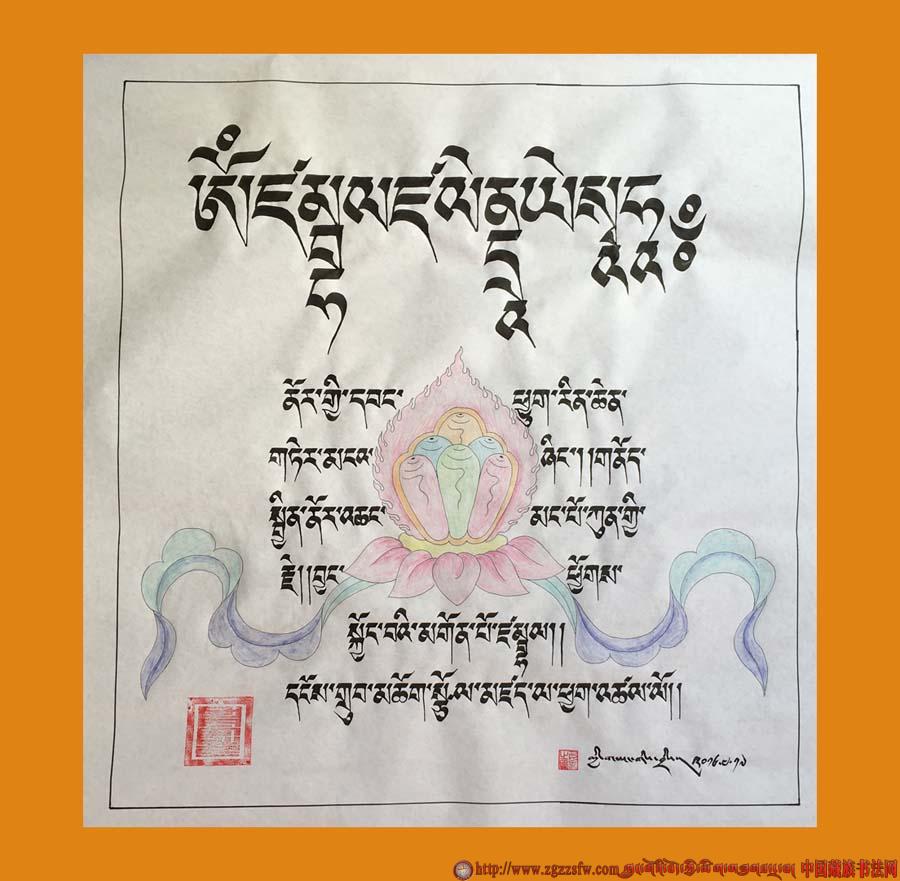 ཨོཾཛམྦྷལཛལེནྡྲཱཡེསྭཱཧཱ༔
ནོར་གྱི་དབང་ ཕྱུག་རིན་ཆེན་
གཏེར་མངའ་ ཞིང་།།གནོད་
སྦྱིན་ནོར་འཆང་ མང་པོ་ཀུན་གྱི་
རྗེ།།བྱང་ ཕྱོགས་
སྐྱོང་བའི་མགོན་པོ་ཛམྦྷལ།།
དངོས་གྲུབ་མཆོག་སྩོལ་མཛད་ལ་ཕྱག་འཚལ་ལོ།།
http://www.zgzzsfw.com 中国藏族书法网